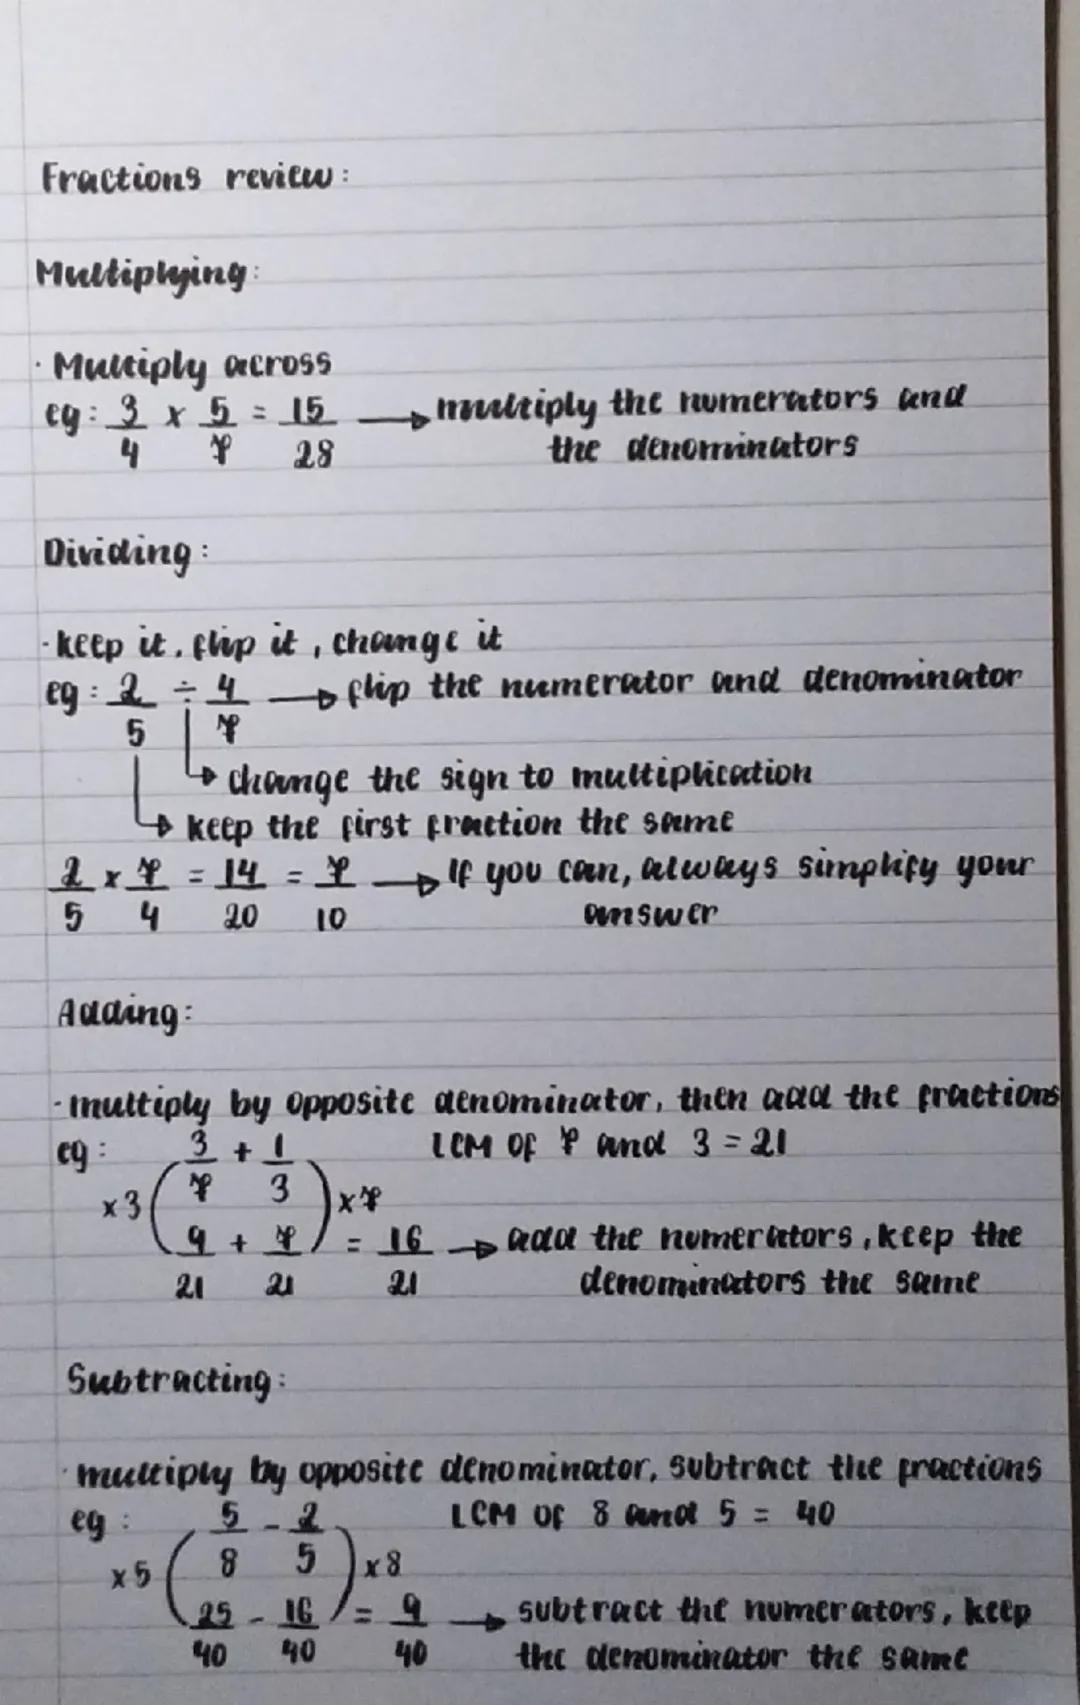 Fractions review:
Multiplying:
· Multiply across
eg: 3/4 x 5/7 = 15/28 → multiply the numerators and
the denominators
Dividing:
· keep it, flip it, change it
eg: 2/5 ÷ 4/7 → flip the numerator and denominator
↳ change the sign to multiplication
↳ keep the first fraction the same
2/5 x 7/4 = 14/20 = 7/10 → If you can, always simplify your
answer
Adding:
· multiply by opposite denominator, then add the fractions
eg: 3/7 + 1/3 LCM OF 7 and 3 = 21
x3 ( ) x7
9/21 + 7/21 = 16/21 → add the numerators, keep the
denominators the same
Subtracting:
· multiply by opposite denominator, subtract the fractions
eg: 5/8 - 2/5 LCM OF 8 and 5 = 40
x5 ( ) x8
25/40 - 16/40 = 9/40 → subtract the numerators, keep
the denominator the same